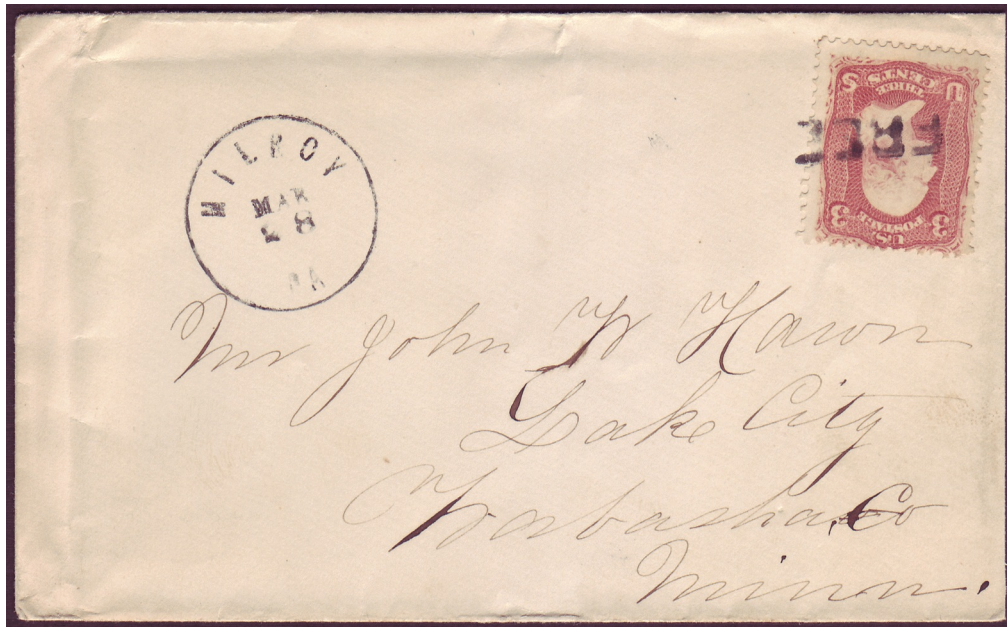 MILROY
MAR
28
PA
U.S. POSTAGE
3 3
U S
THREE
CENTS
Mr John W Hawn
Lake City
Wabasha, Co
Minn.